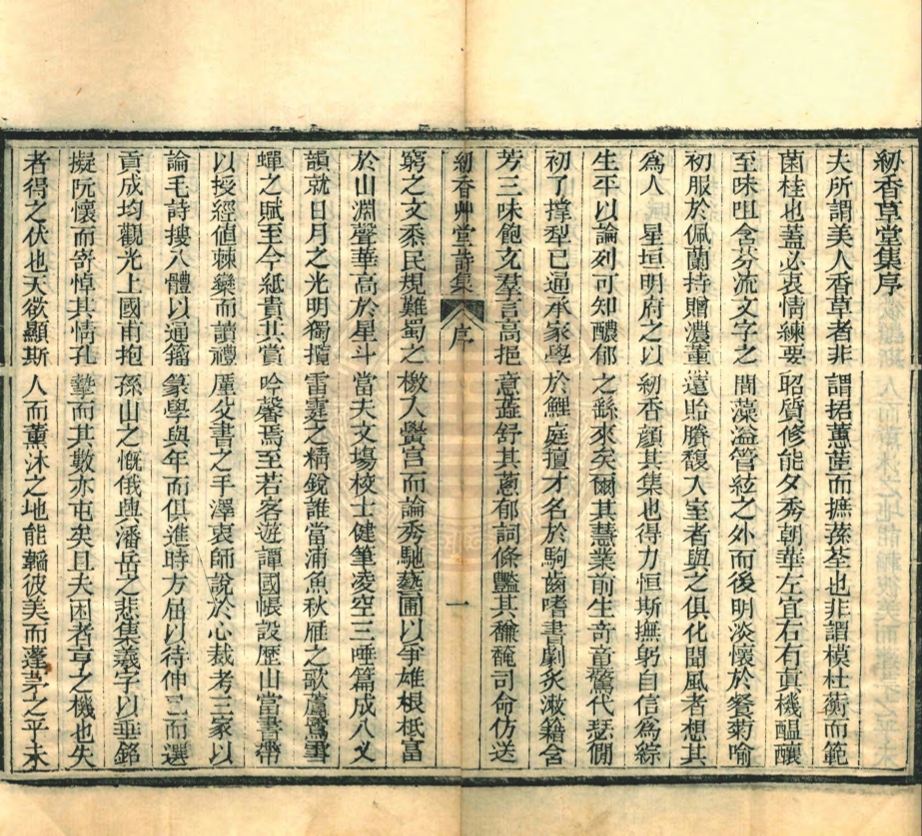 紉香草堂集序
夫所謂美人香草者非謂挹蕙茝而摭蓀荃也非謂模杜蘅而範
菌桂也蓋必衷情練要昭質修能夕秀朝華左宜右有眞機醞釀
至味咀含芬流文字之間藻溢管絃之外而後明淡懷於餐菊喻
初服於佩蘭持贈濃薰遠貽賸馥入室者與之俱化聞風者想其
爲人　星垣明府之以紉香顏其集也得力恒斯撫躬自信爲綜
生平以論列可知醲郁之繇來矣爾其慧業前生奇童驚代瑟僩
初了撑犁已通承家學於鯉庭擅才名於駒齒嗜書劇炙漱籍含
芳三味飽充羣言高挹意蕋舒其蔥郁詞條豔其穠馣司命仿送
紉香艸堂詩集　序　一
窮之文黍民規難蜀之檄入黌宮而論秀馳藝圃以爭雄根柢富
於山淵聲華高於星斗當夫文塲校士健筆凌空三唾篇成八义
韻就日月之光明獨攬雷霆之精銳誰當浦魚秋雁之歌蘆鷺雪
蟬之賦至今紙貴共賞吟馨焉至若客遊譚國帳設歷山當書帶
以授經值棘欒而讀禮厪父書之手澤衷師說於心裁考三家以
論毛詩搜八體以通籀篆學與年而俱進時方屈以待伸已而選
貢成均觀光上國甫抱孫山之慨俄興潘岳之悲集羲字以垂銘
擬阮懷而寄悼其情孔摯而其數亦屯矣且夫困者亨之機也失
者得之伏也天欲顯斯人而薰沐之地能韜彼美而蓬茅之乎未